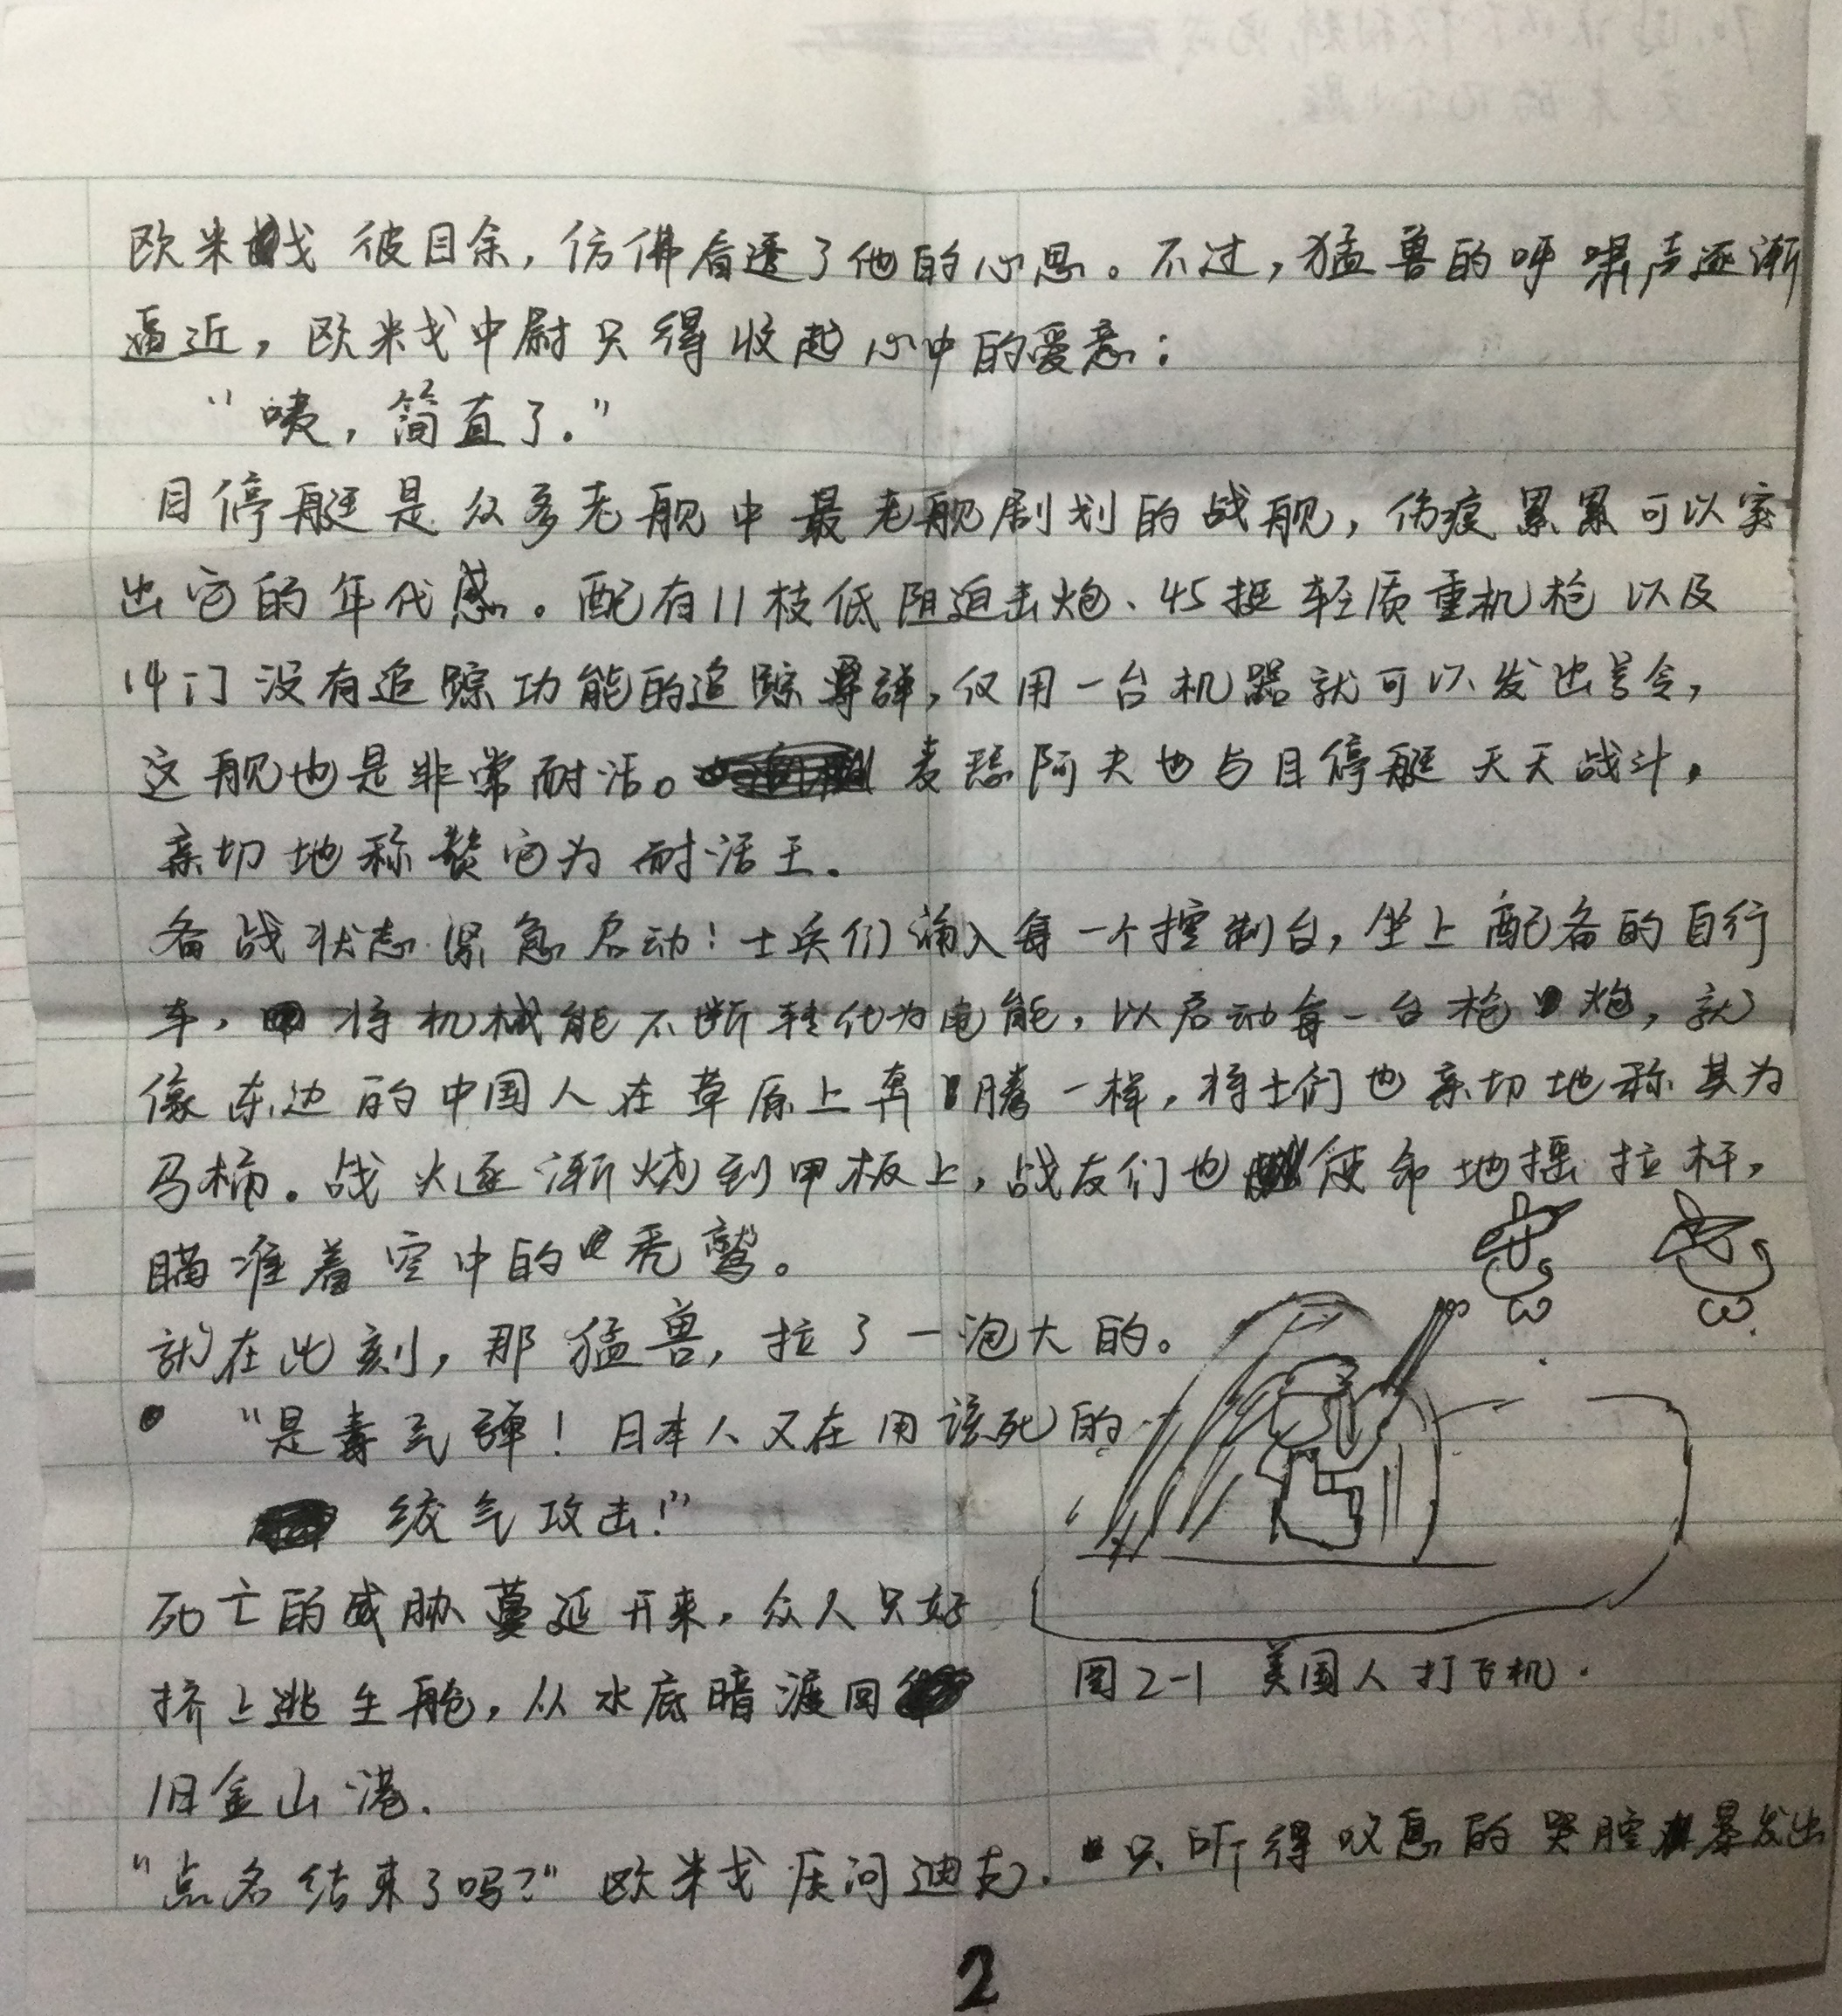 欧米戈 彼目余，仿佛看透了他的心思。不过，猛兽的呼啸声逐渐
逼近，欧米戈中尉只得收起心中的爱意：
“咦，简直了.”
目停艇是众多老舰中最老舰剧划的战舰，伤痕累累可以突
出它的年代感。配有11枝低阻迫击炮、45挺轻质重机枪以及
14门没有追踪功能的追踪导弹，仅用一台机器就可以发出号令，
这舰也是非常耐活。麦琺阿夫也与目停艇天天战斗，
亲切地称赞它为耐活王.
备战状态紧急启动！士兵们涌入每一个控制台，坐上配备的自行
车，将机械能不断转化为电能，以启动每一台枪炮，就
像东边的中国人在草原上奔腾一样，将士们也亲切地称其为
马桶。战火逐渐烧到甲板上，战友们也使命地摇拉杆，
瞄准着空中的秃鹫。
就在此刻，那猛兽，拉了一泡大的。
“是毒气弹！日本人又在用该死的
绞气攻击！”
死亡的威胁蔓延开来，众人只好
挤上逃生舱，从水底暗渡回
旧金山港.
图2-1 美国人打飞机.
“点名结束了吗？”欧米戈质问迪克. 只听得叹息的哭腔暴发出
2